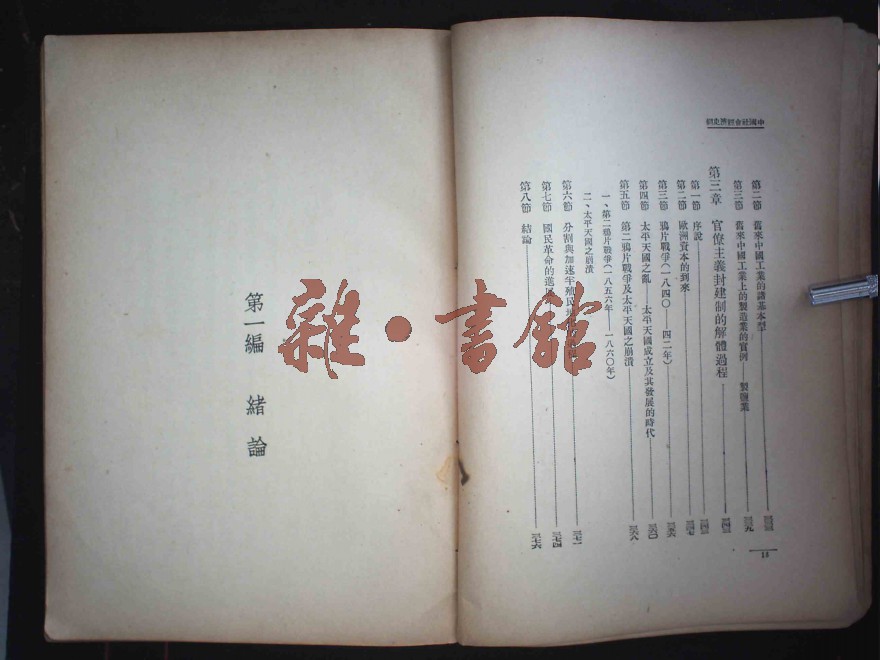 中國社會經濟史綱
第二節 舊來中國工業的諸基本型
第三節 舊來中國工業上的製造業的實例 製鹽業
第三章 官僚主義封建制的解體過程
第一節 序說
第二節 歐洲資本的到來
第三節 鴉片戰爭(一八四〇——四二年)
第四節 太平天國之亂——太平天國成立及其發展的時代
第五節 第二鴉片戰爭及太平天國之崩潰
一、第二鴉片戰爭(一八五六年——一八六〇年)
二、太平天國之崩潰
第六節 分割與加速半殖民地
第七節 國民革命的進展
第八節 結論
第一編 緒論
雜·書館